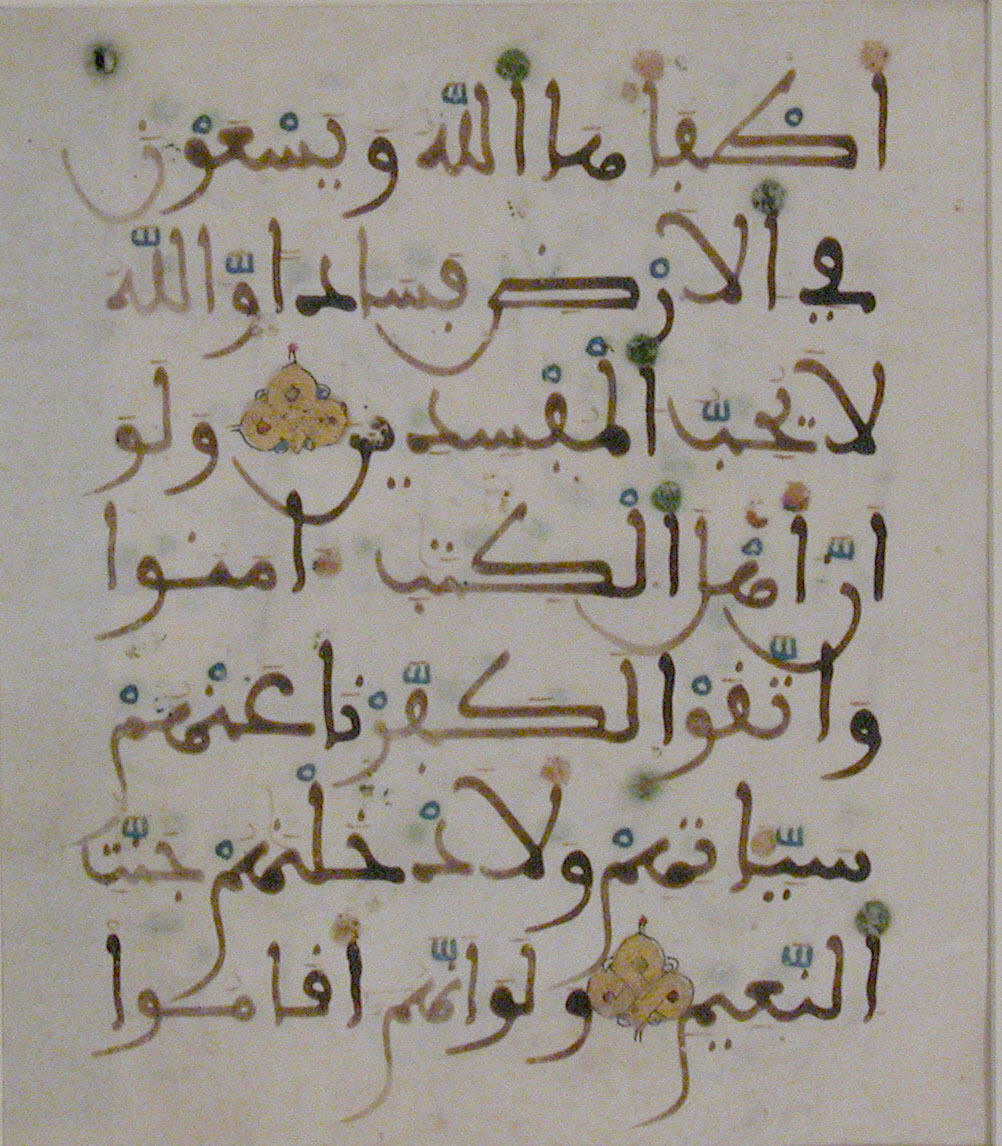 أَطْفَأَهَا اَللَّهُ وَيَسْعَوْنَ
فِي اِلَارْضِ فَسَاداً وَّاللَّهُ
لَا يُحِبُّ اُلْمُفْسِدِينَ وَلَوَ
انَّ أَهْلَ اَلْكِتَٰبِ ءَامَنُوا
وَاتَّقَوْا لَكَفَّرْنَا عَنْهُمْ
سَيِّـَٔاتِهِمْ وَلَأَدْخَلْنَٰهُمْ جَنَّٰتِ
اِلنَّعِيمِ وَلَوَ انَّهُمُ أَقَامُوا